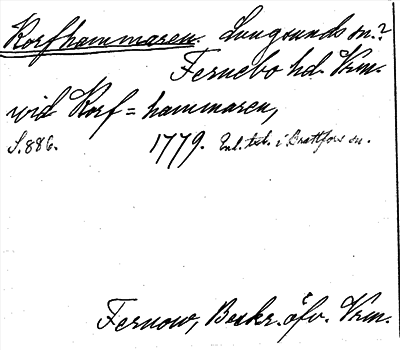 Korfhammaren. Lungsunds sn.?
Fernebo hd. Vrm.
wid Korf=hammaren,
S.886. 1779. Enl. tub. i Brattfors sn.
Fernow, Beskr. öfv. Vrm.